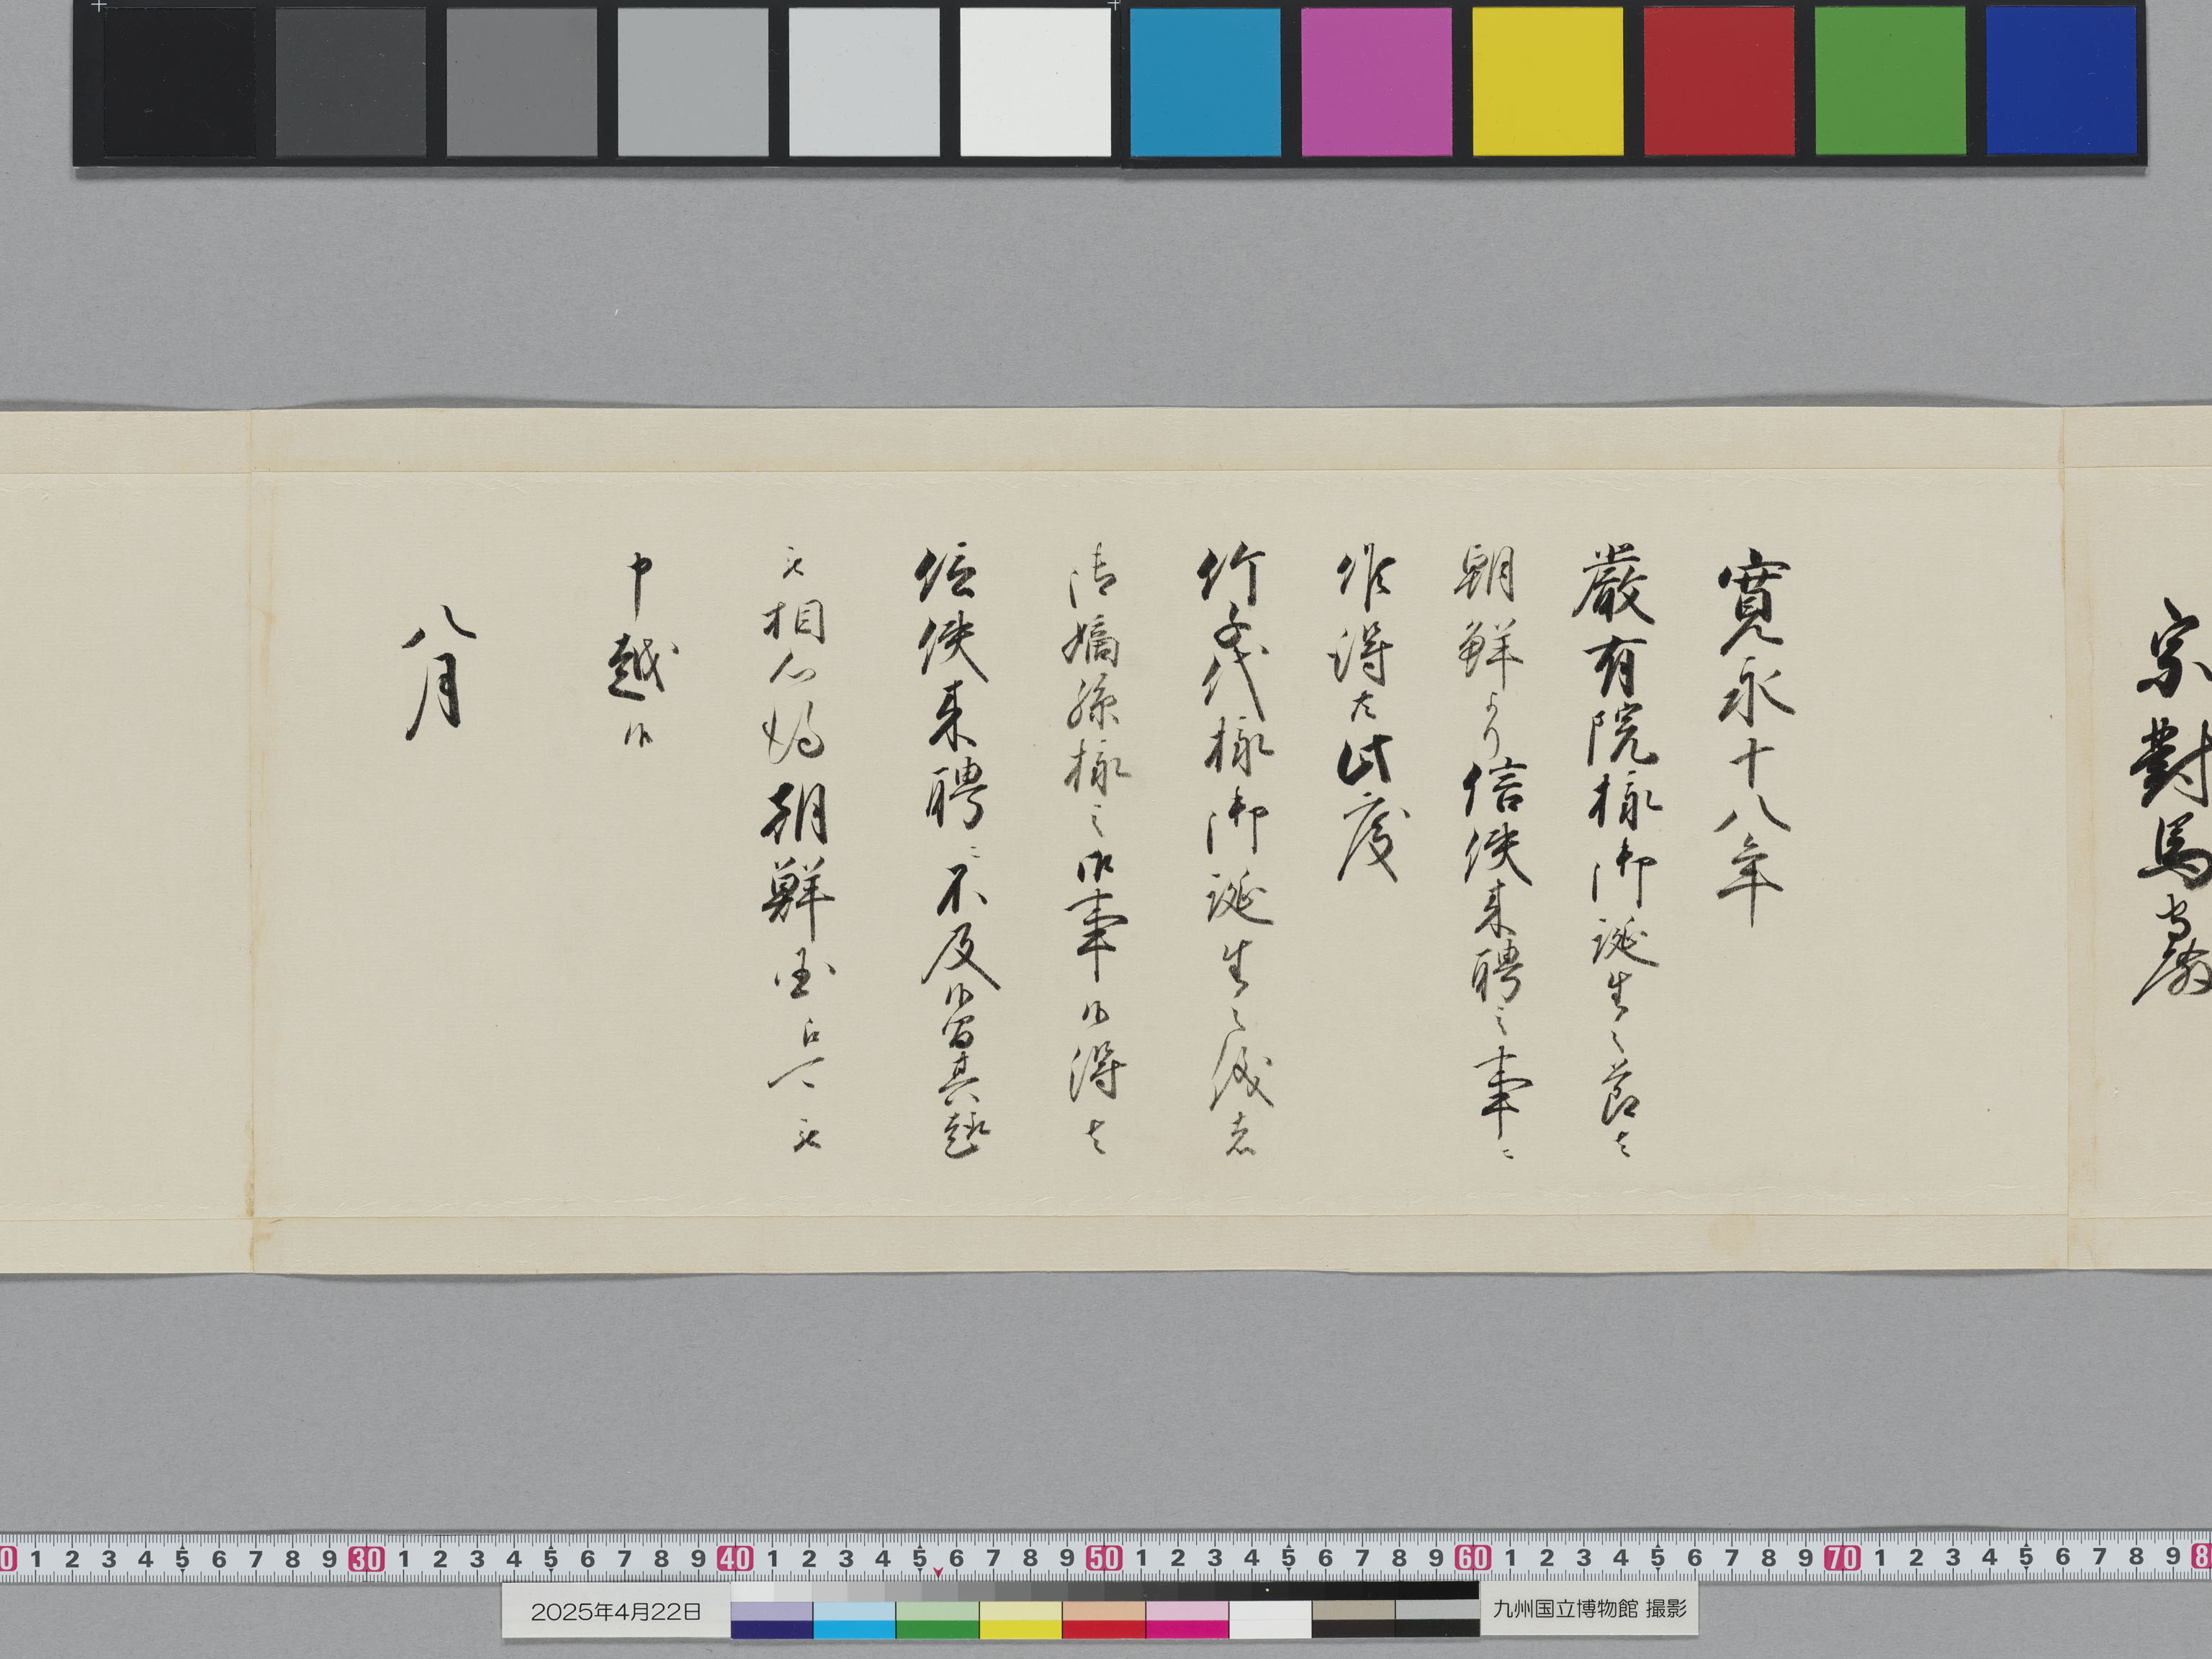 宗對馬守殿
寛永十八年
嚴有院様御誕生之節者
朝鮮より信使来聘之事ニ
候得共此度
竹千代様御誕生之儀者
御嫡孫様之御事候得者
信使来聘ニ不及候間其趣
被相心得朝鮮国江可被
申越候
八月
0 1 2 3 4 5 6 7 8 9 30 1 2 3 4 5 6 7 8 9 40 1 2 3 4 5 6 7 8 9 50 1 2 3 4 5 6 7 8 9 60 1 2 3 4 5 6 7 8 9 70 1 2 3 4 5 6 7 8 9 8
2025年4月22日
九州国立博物館 撮影